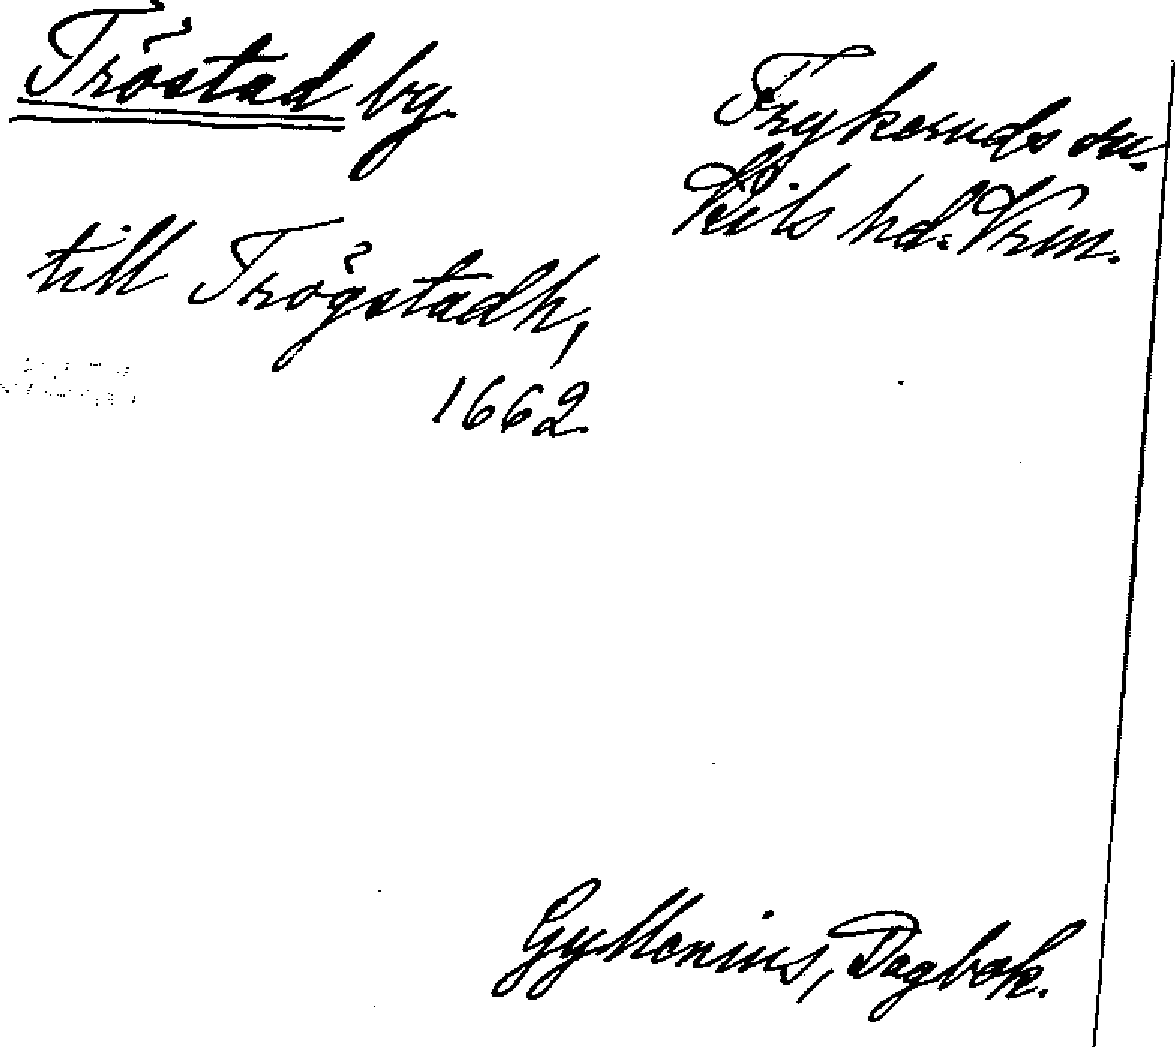 Tröstad by.
Frykeruds sn.
Kils hd. Vrm.
till Trögstadh,
1662
Gyllenius, Dagbok.